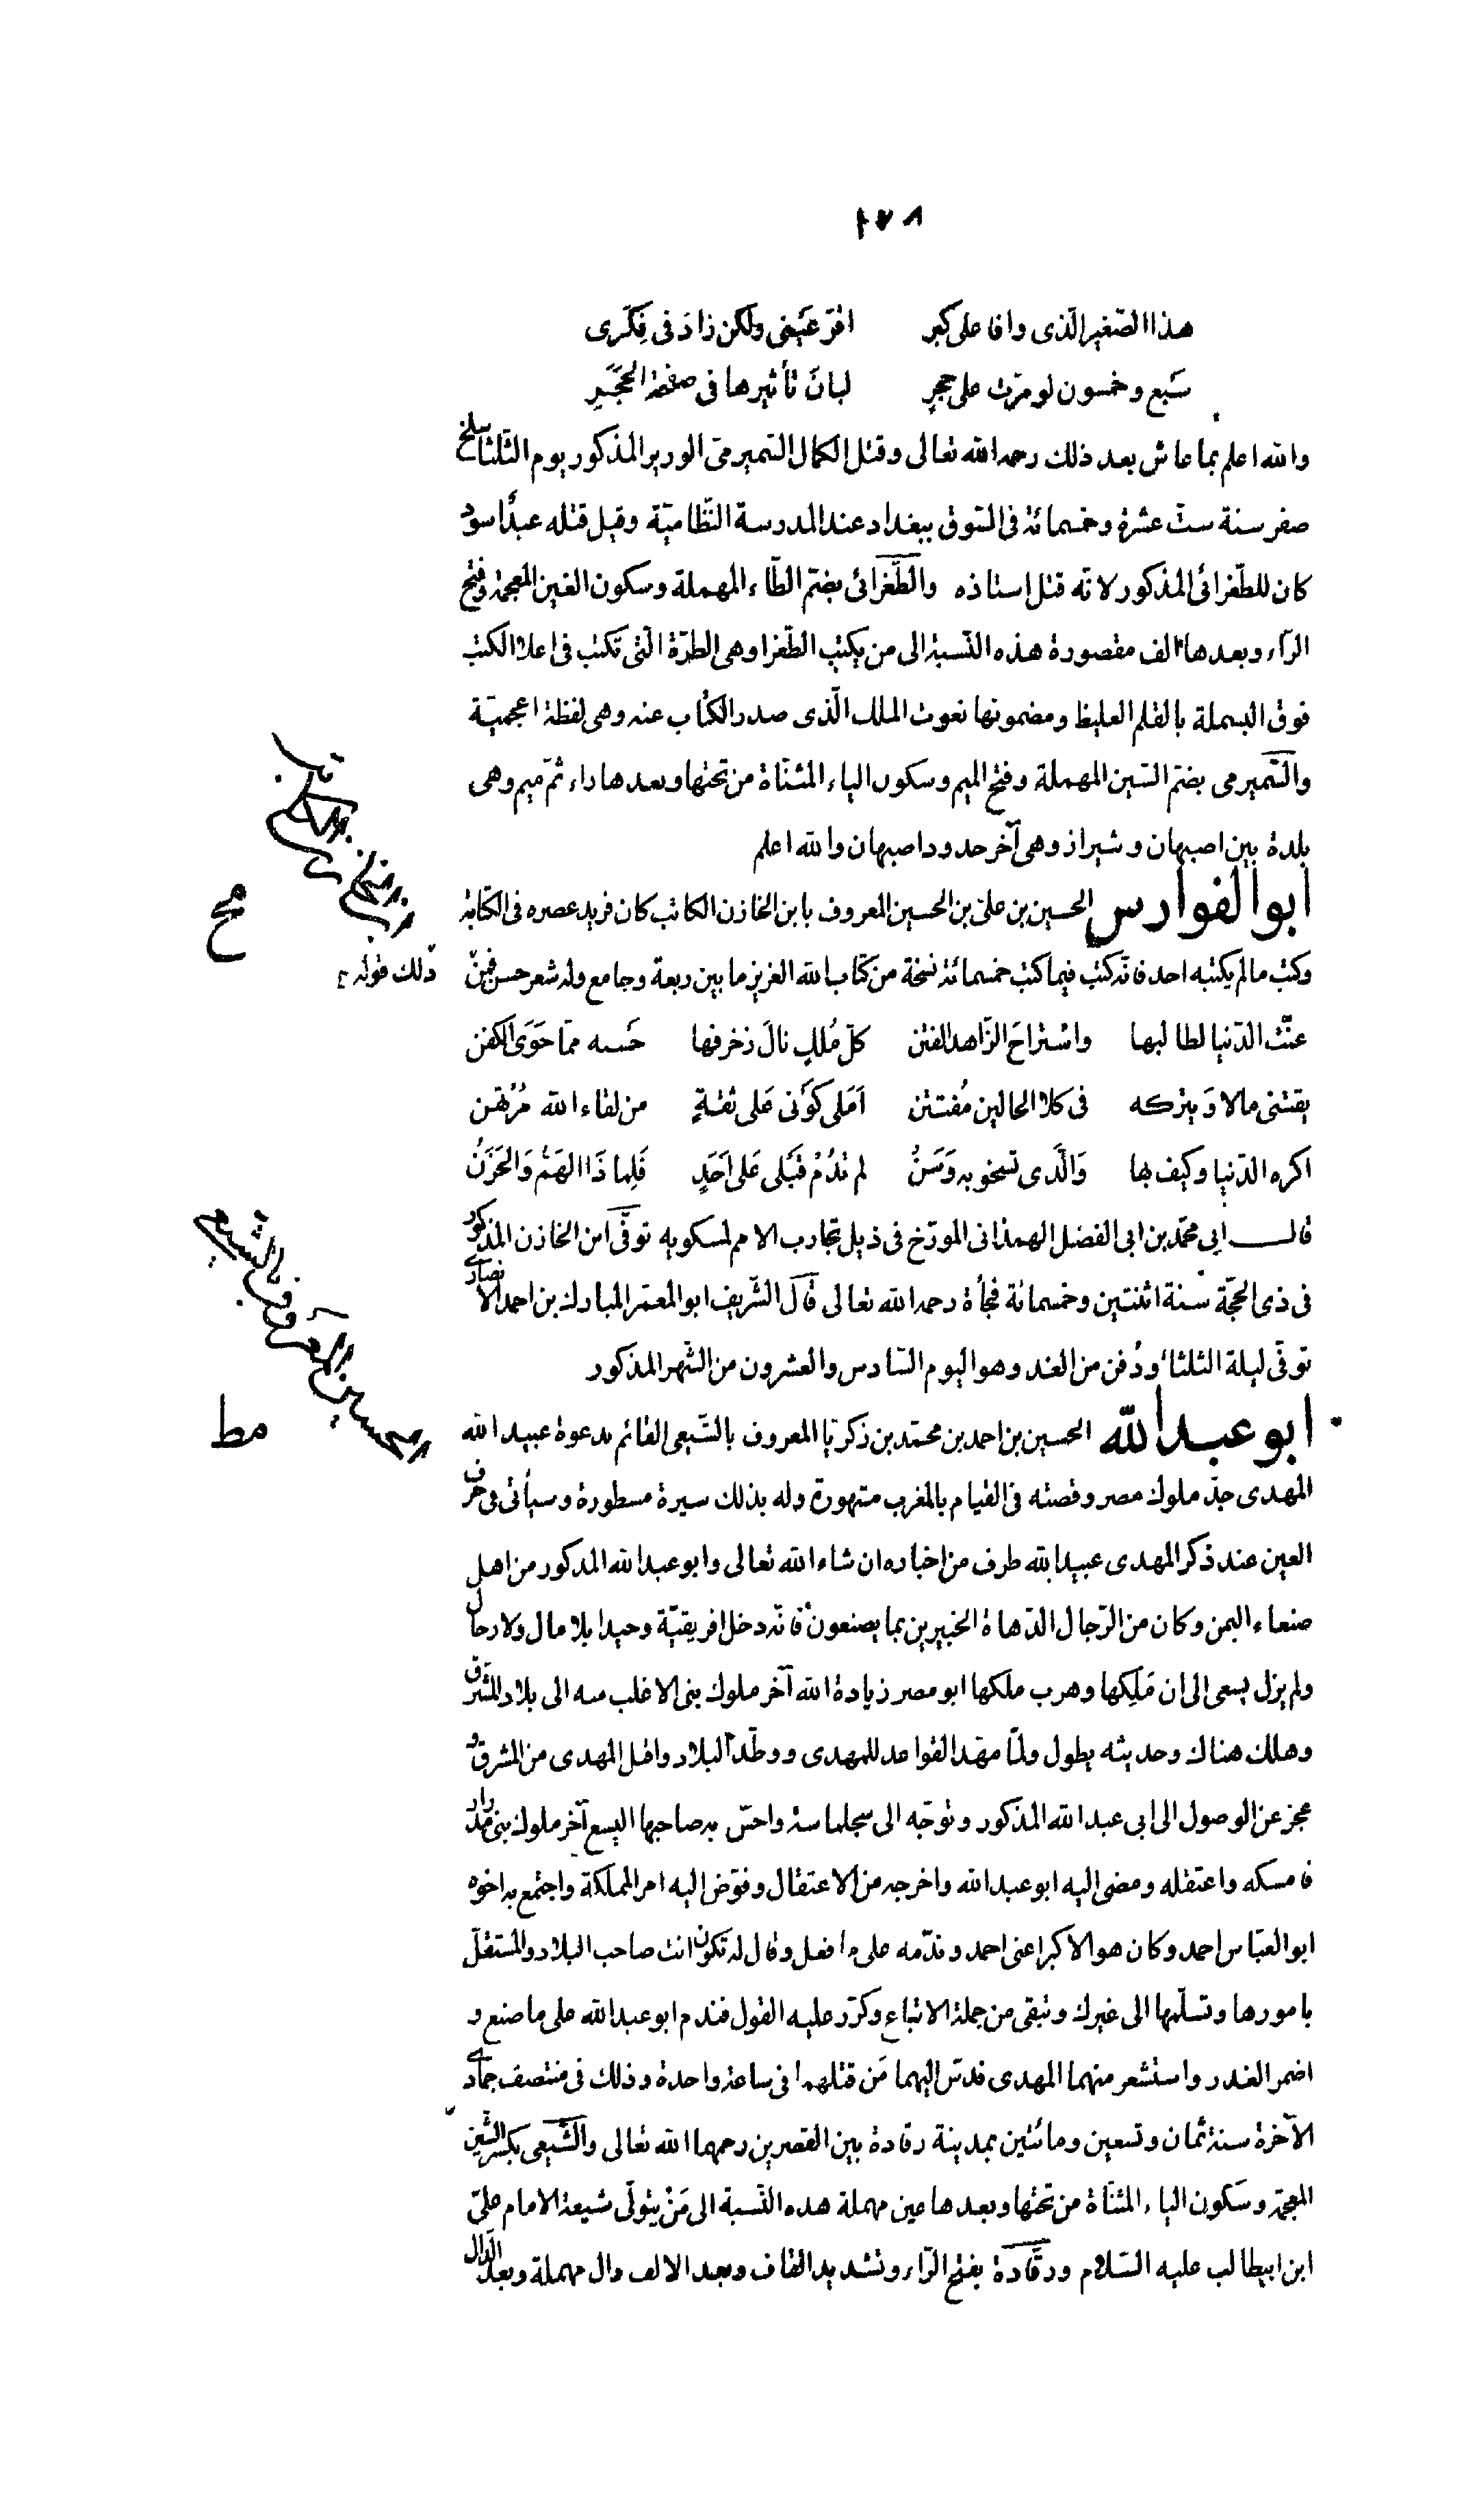 ١٧٨
هذا الصّغير الّذى وافا على كبر    اقرّ عَينى ولكن زادَ فى فِكَرى
سَبع وخمسون لو مرّت على حجرٍ    لبانَ تأثيرها فى صفحة الحَجَرِ
والله اعلم بما عاش بعد ذلك رحمه الله تعالى وقتل الكمال السّميرمىّ الوزير المذكور يوم الثّلثا سلخ
صفر سنة ستّ عشرة وخمسمائة فى السّوق ببغداد عند المدرسة النّظاميّة وقيل قتله عبدٌ اسود
كان للطّغرائى المذكور لانّه قتل استاذه والطّغرائى بضمّ الطّاء المهملة وسكون الغين المعجمة وفتح
الرّاء وبعدها الف مقصورة هذه النّسبة الى من يكتب الطّغرا وهى الطرّة الّتى تكتب فى اعلا الكتب
فوق البسملة بالقلم الغليظ ومضمونها نعوت الملك الّذى صدر الكتاب عنه وهى لفظة اعجميّة
والسّميرمى بضمّ السّين المهملة وفتح الميم وسكون الياء المثنّاة من تحتها وبعدها راء ثمّ ميم وهى
بلدة بين اصبهان وشيراز وهى آخر حدود اصبهان والله اعلم
ابو الفوارس الحسين بن علىّ بن الحسين المعروف بابن الخازن الكاتب كان فريد عصره فى الكتابة
ابن الخازن الكاتب
مح
وكتب ما لم يكتبه احد فانّه كتب فيما كتب خمسمائة نسخة من كتاب الله العزيز ما بين ربعة وجامع وله شعر حسن فمِن
ذلك قوله
عنّت الدّنيا لطالبها    واسْتراحَ الزّاهد الفتن    كلّ مُلكٍ نالَ زخرفها    حَسبه ممّا حَوَى الكفن
يقتنى مالا وَيتركه    فى كلا الحالين مُفتتن    اَمَلى كَوْنى عَلى ثقةٍ    من لقاء الله مُرْتهن
اكره الدّنيا وكيف بها    وَالّذى تسخو به وَسَنُ    لم تدُمْ قَبْلى عَلى اَحَدٍ    فَلِماذَا الهَمُّ وَالحَزَنُ
قال ابى محمّد بن ابى الفضل الهمذانى المورّخ فى ذيل تجارب الامم لمسكويه توفّى ابن الخازن المذكور
فى ذى الحجّة سنة اثنتين وخمسمائة فجأة رحمه الله تعالى قال الشّريف ابو المعمّر المبارك بن احمد الانصارى
توفّى ليلة الثلثاء ودُفن من الغد وهو اليوم السّادس والعشرون من الشّهر المذكور
ابو عبد الله الحسين بن احمد بن محمّد بن زكريّا المعروف بالشّيعى القائم بدعوة عبيد الله
الحسين المعروف بالشيعى
مط
المهدى جدّ ملوك مصر وقصته فى القيام بالمغرب مشهورة وله بذلك سيرة مسطورة وسيأتى فى حرف
العين عند ذكر المهدى عبيد الله طرف من اخباره ان شاء الله تعالى وابو عبد الله المذكور من اهل
صنعاء اليمن وكان من الرّجال الدّهاة الخبيرين بما يصنعون فانّه دخل افريقيّة وحيدا بلا مال ولا رجال
ولم يزل يسعى الى ان مَلِكها وهرب ملكها ابو مضر زيادة الله آخر ملوك بنى الاغلب منه الى بلاد المشرق
وهلك هناك وحديثه يطول ولمّا مهّد القواعد للمهدى ووطّد البلاد واقبل المهدى من المشرق و
عجز عن الوصول الى ابى عبد الله المذكور وتوجّه الى سجلماسة واحسّ به صاحبها اليسع آخر ملوك بنى مدرار
فامسكه واعتقله ومضى اليه ابو عبد الله واخرجه من الاعتقال وفوّض اليه امر المملكة واجتمع به اخوه
ابو العبّاس احمد وكان هو الاكبر اعنى احمد وندّمه على ما فعل وقال له تكون انت صاحب البلاد والمستقلّ
بامورها وتسلّمها الى غيرك وتبقى من جملة الاتباع وكرّر عليه القول فندم ابو عبد الله على ما صنع و
اضمر الغدر واستشعر منهما المهدى فدسّ اليهما مَن قتلهما فى ساعة واحدة وذلك فى منتصف جمادى
الآخرة سنة ثمان وتسعين ومائتين بمدينة رقادة بين القصرين رحمهما الله تعالى والشّيعى بكسر الشّين
المعجمة وسَكون الياء المثنّاة من تحتها وبعدها عين مهملة هذه النّسبة الى مَنْ يتولّى شيعة الامام علىّ
ابن ابيطالب عليه السّلام ورقّادة بفتح الرّاء وتشديد القاف وبعد الالف دال مهملة وبعد الدّال